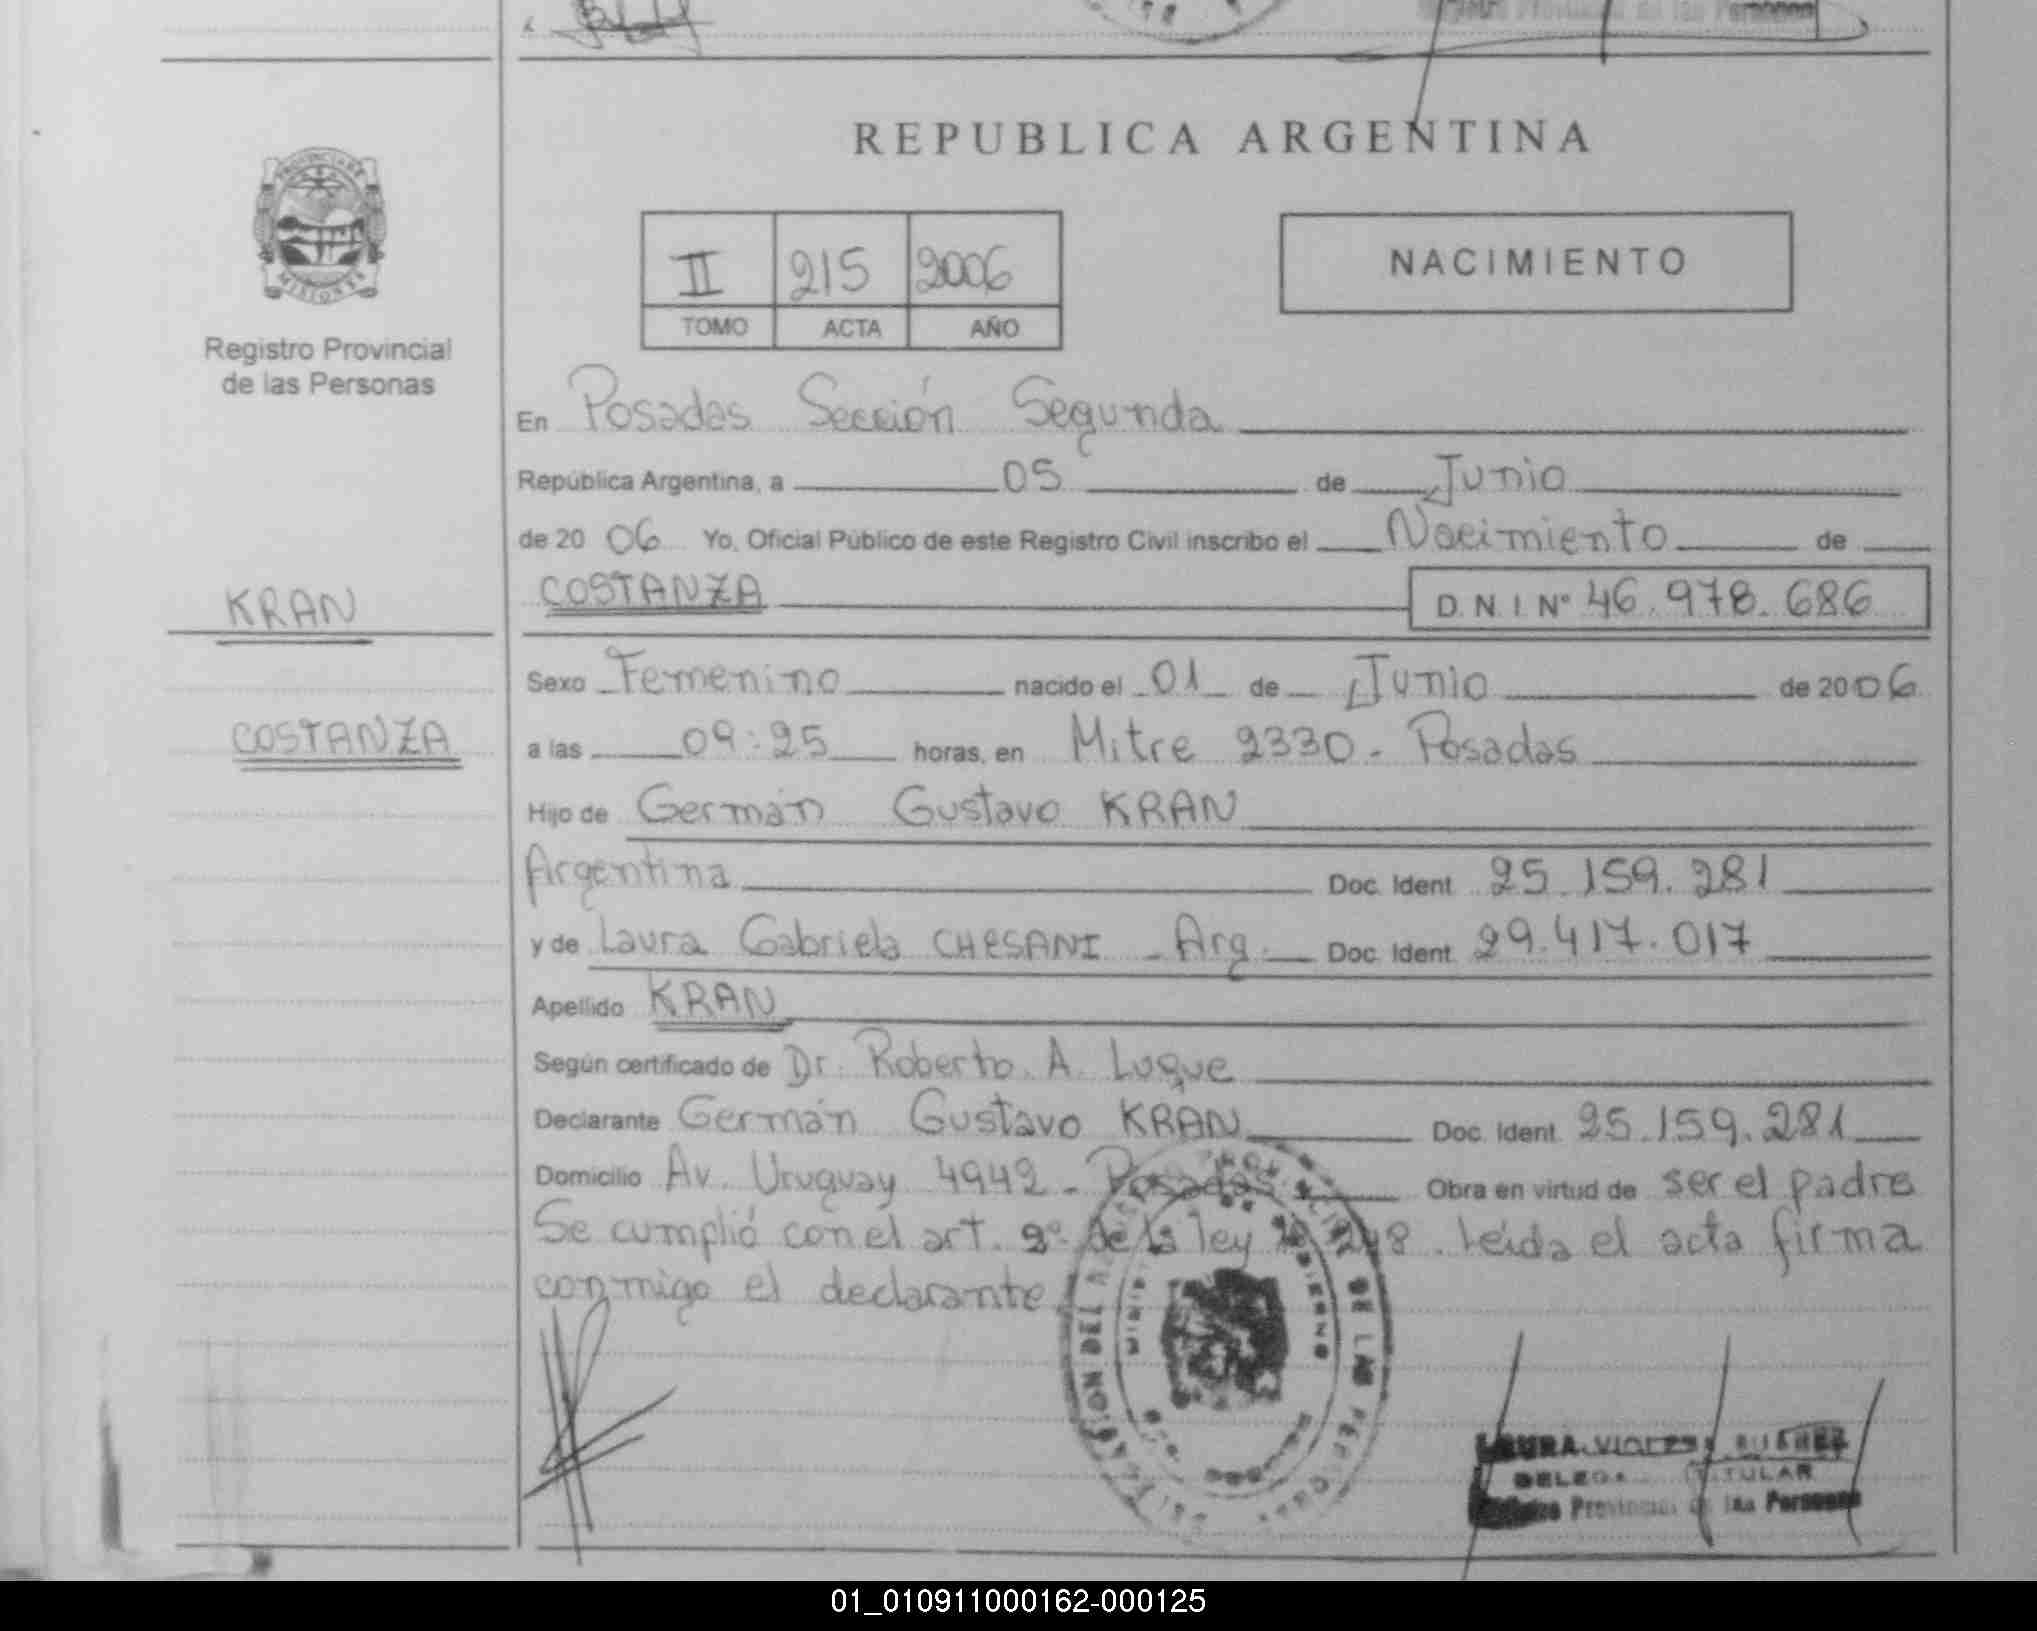 REPUBLICA ARGENTINA
PROVINCIA DE
MISIONES
Registro Provincial
de las Personas
II 215 2006
TOMO ACTA AÑO
NACIMIENTO
En Posadas Sección Segunda
República Argentina, a 05 de Junio
de 2006 Yo, Oficial Público de este Registro Civil inscribo el Nacimiento de
KRAN
COSTANZA D.N.I. Nº 46.978.686
Sexo Femenino nacido el 01 de Junio de 2006
COSTANZA
a las 09:25 horas, en Mitre 2330 - Posadas
Hijo de Germán Gustavo KRAN
Argentina Doc. Ident. 25.159.281
y de Laura Gabriela CHESANI - Arg. Doc. Ident. 29.417.017
Apellido KRAN
Según certificado de Dr. Roberto A. Luque
Declarante Germán Gustavo KRAN Doc. Ident. 25.159.281
Domicilio Av. Uruguay 4942 - Posadas Obra en virtud de ser el padre
Se cumplió con el art. 2º de la ley . Leída el acta firma
conmigo el declarante
DE LAS
LAURA
TITULAR
Provincial de las Personas
01_010911000162-000125